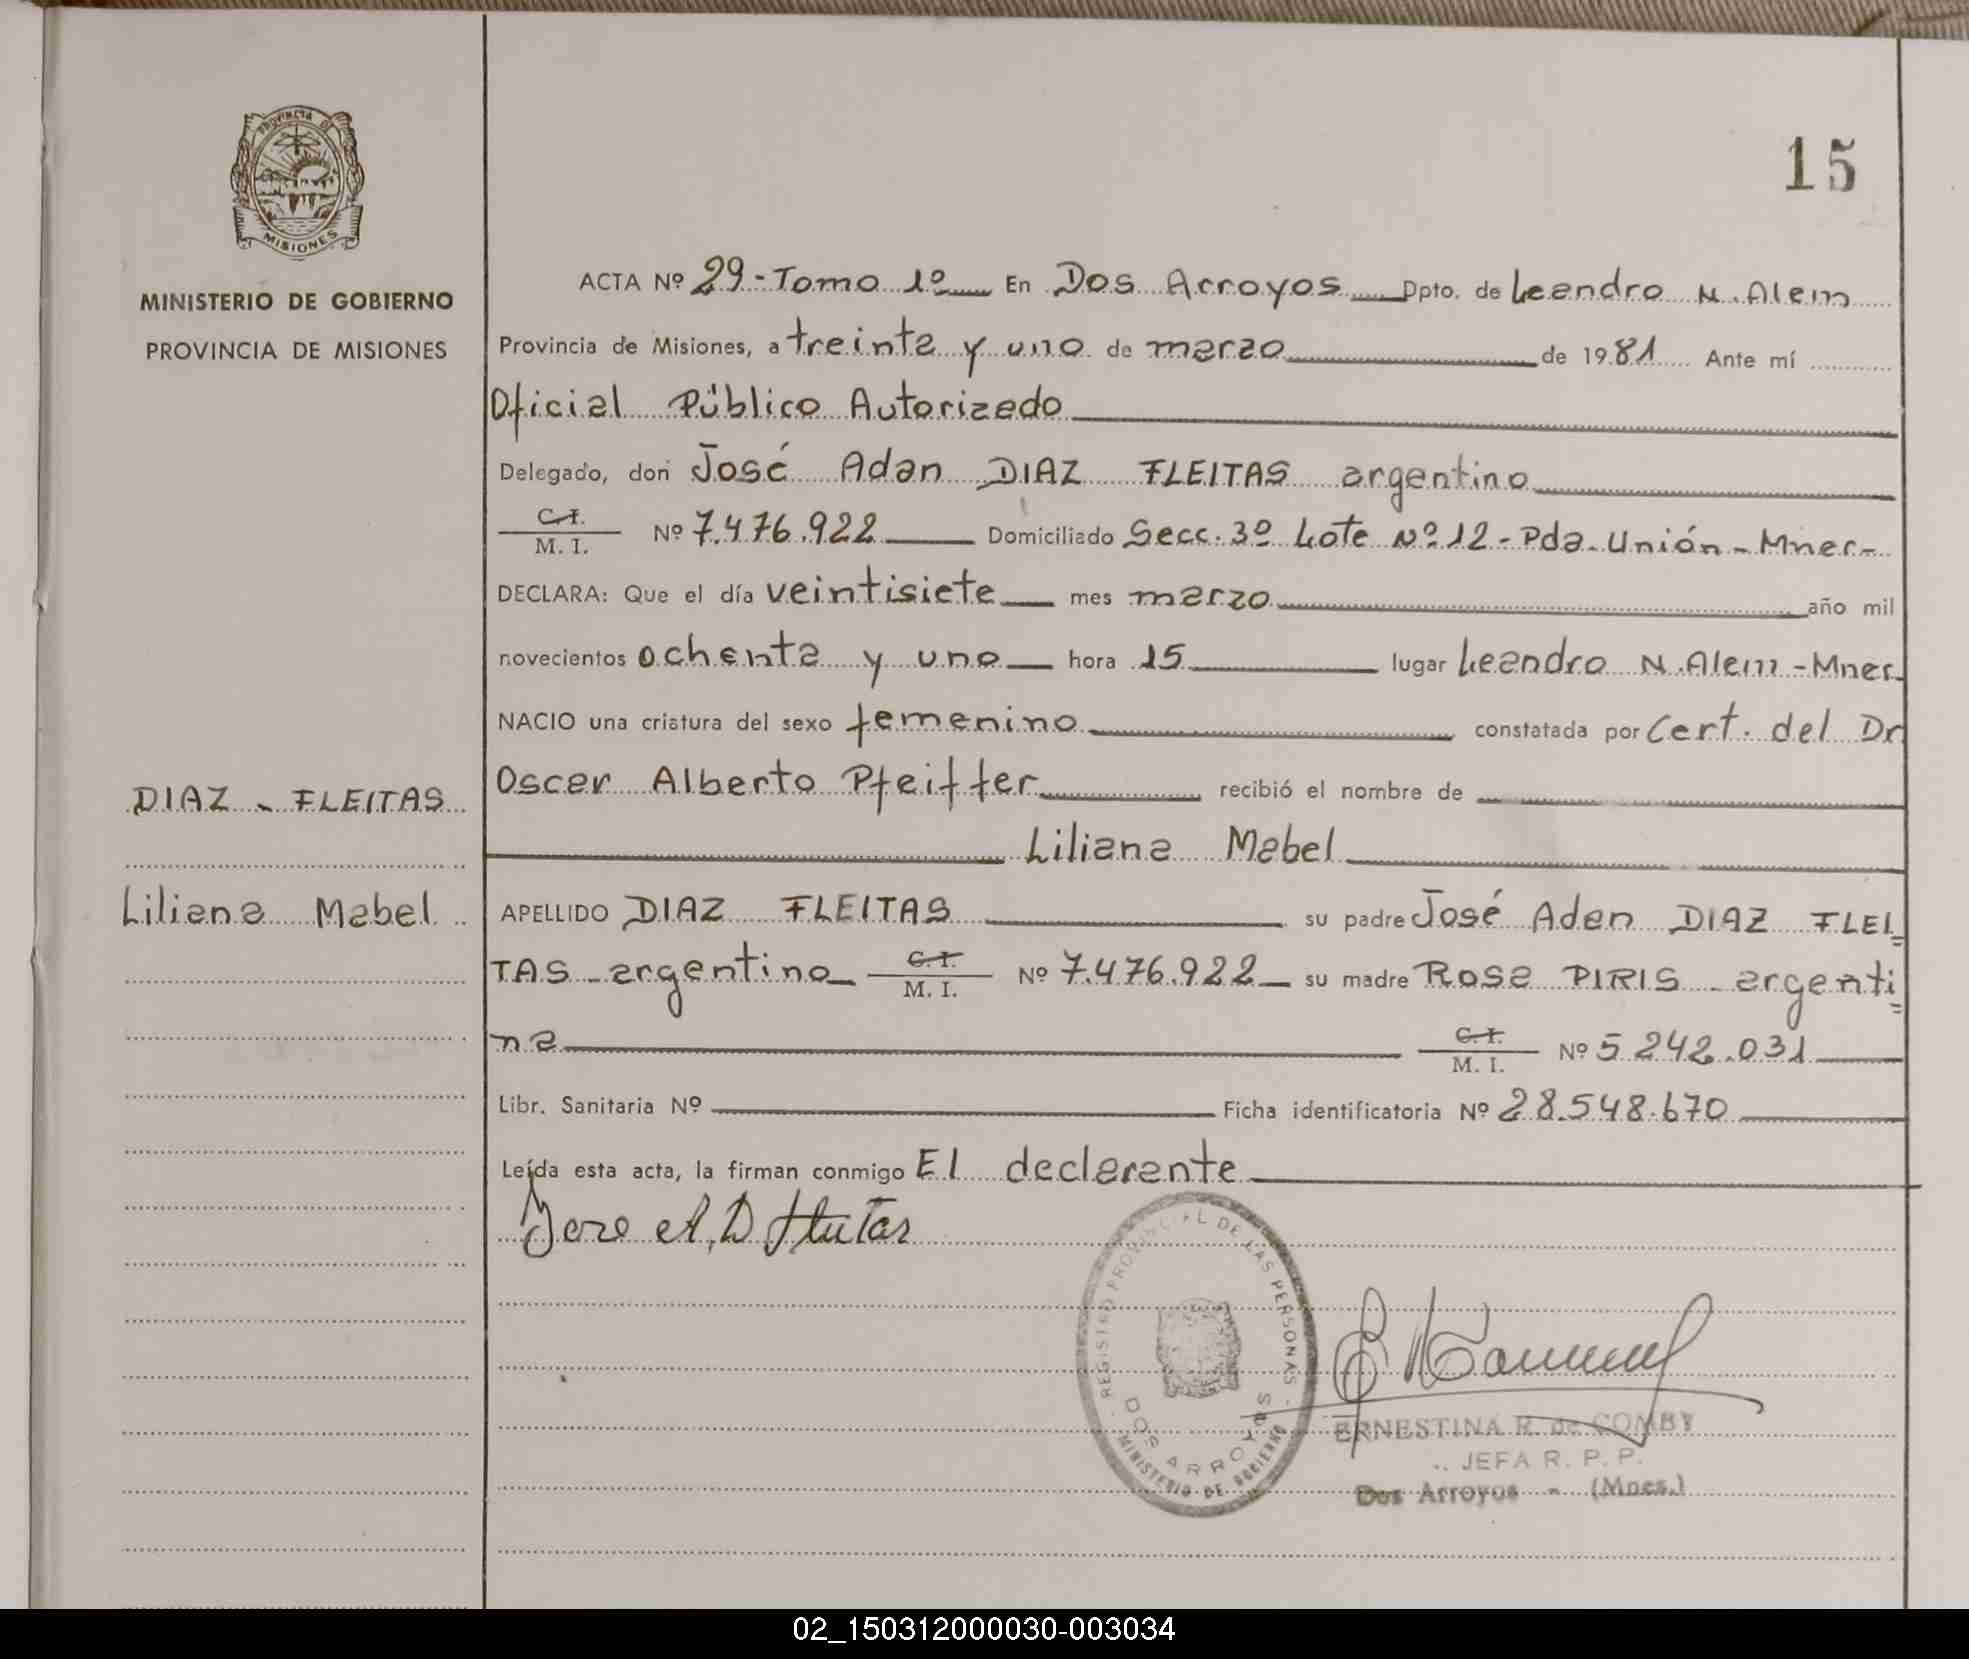 PROVINCIA DE
MISIONES
MINISTERIO DE GOBIERNO
PROVINCIA DE MISIONES
DIAZ - FLEITAS
Liliana Mabel
15
ACTA Nº 29 - Tomo 1º En Dos Arroyos Dpto. de Leandro N. Alem
Provincia de Misiones, a treinta y uno de marzo de 1981 Ante mí
Oficial Público Autorizado
Delegado, don José Adan DIAZ FLEITAS argentino
C.I.
M. I. Nº 7.476.922 Domiciliado Secc. 3º Lote Nº 12 - Pda. Unión - Mnes -
DECLARA: Que el día veintisiete mes marzo año mil
novecientos ochenta y uno hora 15 lugar Leandro N. Alem - Mnes
NACIO una criatura del sexo femenino constatada por Cert. del Dr
Oscar Alberto Pfeiffer recibió el nombre de
Liliana Mabel
APELLIDO DIAZ FLEITAS su padre José Adan DIAZ FLEI
TAS - argentino C.I.
M. I. Nº 7.476.922 su madre Rosa PIRIS - argenti
na C.I.
M. I. Nº 5.242.031
Libr. Sanitaria Nº Ficha identificatoria Nº 28.548.670
Leída esta acta, la firman conmigo El declarante
Jose A. D Fleitas
REGISTRO PROVINCIAL DE LAS PERSONAS
DOS ARROYOS
MINISTERIO DE GOBIERNO
ERNESTINA R. de COMBY
JEFA R. P. P.
Dos Arroyos - (Mnes.)
02_150312000030-003034